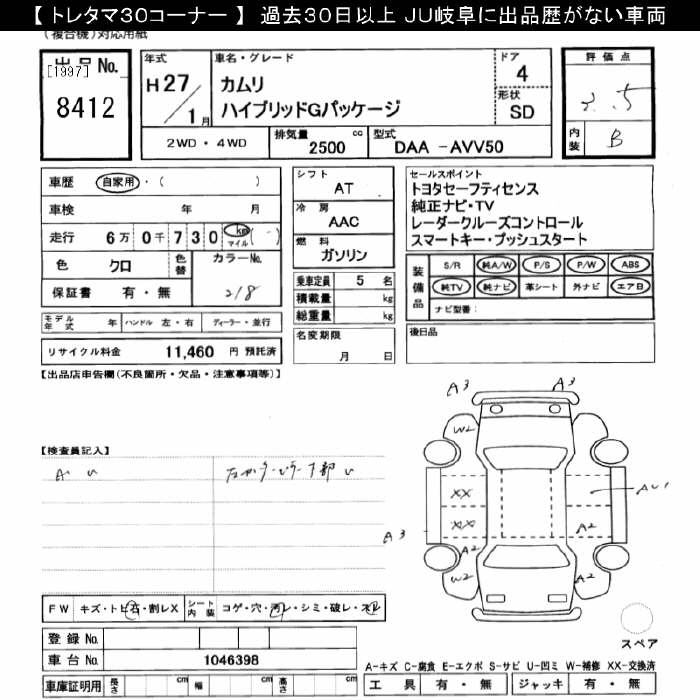 【 トレタマ30コーナー 】 過去30日以上 JU岐阜に出品歴がない車両
(複合機)対応用紙
出品No.
[1997]
8412
年式
H27/1月
車名・グレード
カムリ
ハイブリッドGパッケージ
ドア
4
形状
SD
2WD・4WD
排気量 2500 cc
型式 DAA -AVV50
評価点
3.5
内装 B
車歴 自家用・( )
車検 年 月
走行 6万 0千 7 3 0 km マイル ( )
色 クロ 色替 カラーNo.
218
保証書 有・無
モデル年式 年 ハンドル 左・右 ディーラー・並行
リサイクル料金 11,460 円 預託済
シフト
AT
冷房
AAC
燃料
ガソリン
乗車定員 5 名
積載量 kg
総重量 kg
名変期限
月 日
セールスポイント
トヨタセーフティセンス
純正ナビ・TV
レーダークルーズコントロール
スマートキー・プッシュスタート
装備品
S/R 純A/W P/S P/W ABS
純TV 純ナビ 革シート 外ナビ エアB
ナビ型番:
後日品
【出品店申告欄(不良箇所・欠品・注意事項等)】
【検査員記入】
A3 A3
W2
XX AU1
XX A2
A3
A2
W2 A2
FW キズ・トビ石・割レX シート内装 コゲ・穴・汚レ・シミ・破レ・スレ
登録No.
車台No. 1046398
車庫証明用 長さ cm 幅 cm 高さ cm
スペア
A-キズ C-腐食 E-エクボ S-サビ U-凹ミ W-補修 XX-交換済
工具 有・無 ジャッキ 有・無